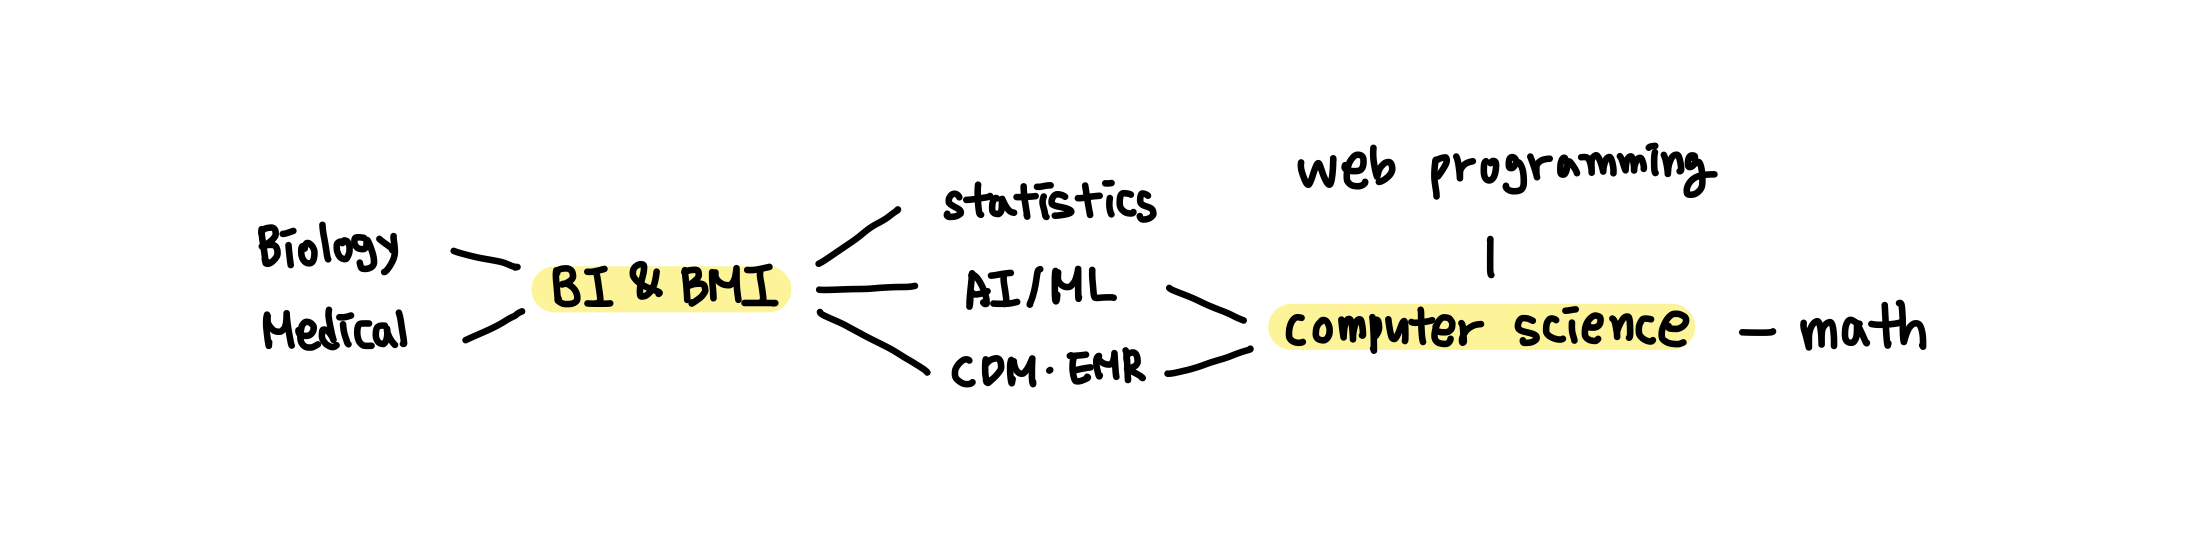 Biology
Medical
BI & BMI
statistics
AI/ML
CDM · EMR
web programming
computer science
math